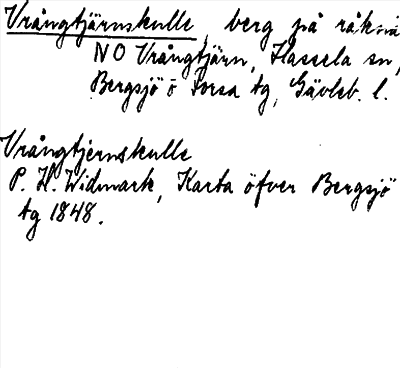 Vrångtjärnskulle, berg på råk
NO Vrångtjärn, Hassela sn,
Bergsjö o Forsa tg, Gävleb. l.
Vrångtjernskulle
P. H. Widmark, Karta öfver Bergsjö
tg 1848.